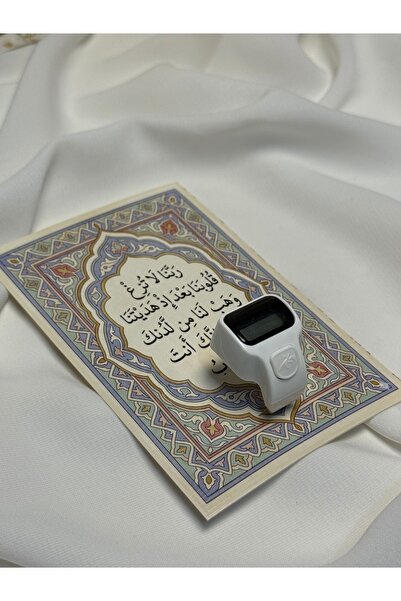 رَبَّنَا لَا تُزِغْ
قُلُوبَنَا بَعْدَ إِذْ هَدَيْتَنَا
وَهَبْ لَنَا مِنْ لَدُنْكَ
أَنْتَ